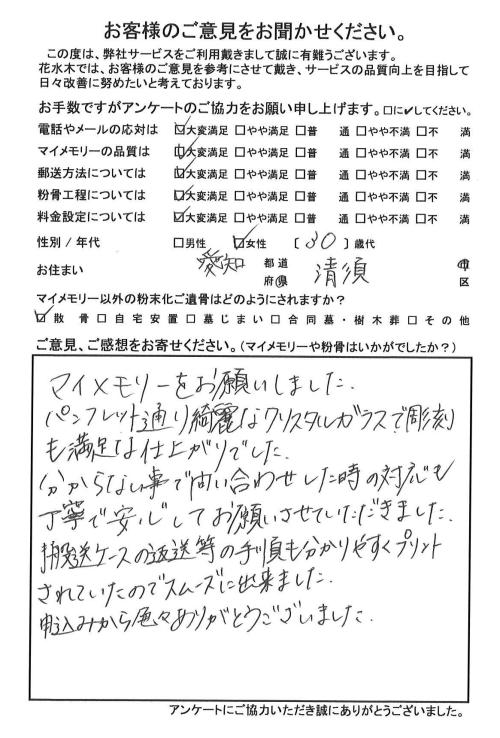 お客様のご意見をお聞かせください。
この度は、弊社サービスをご利用戴きまして誠に有難うございます。
花水木では、お客様のご意見を参考にさせて戴き、サービスの品質向上を目指して
日々改善に努めたいと考えております。
お手数ですがアンケートのご協力をお願い申し上げます。□に✔してください。
電話やメールの応対は ☑大変満足 □やや満足 □普 通 □やや不満 □不 満
マイメモリーの品質は ☑大変満足 □やや満足 □普 通 □やや不満 □不 満
郵送方法については ☑大変満足 □やや満足 □普 通 □やや不満 □不 満
粉骨工程については ☑大変満足 □やや満足 □普 通 □やや不満 □不 満
料金設定については ☑大変満足 □やや満足 □普 通 □やや不満 □不 満
性別 / 年代 □男性 ☑女性 [ 30 ] 歳代
お住まい 愛知 都道府県 清須 市区
マイメモリー以外の粉末化ご遺骨はどのようにされますか?
☑散 骨 □自宅安置 □墓じまい □合同墓・樹木葬 □その他
ご意見、ご感想をお寄せください。(マイメモリーや粉骨はいかがでしたか?)
マイメモリーをお願いしました.
パンフレット通り綺麗なクリスタルガラスで彫刻
も満足な仕上がりでした.
分からない事で問い合わせした時の対応も
丁寧で安心してお願いさせていただきました.
搬送ケースの返送等の手順も分かりやすくプリント
されていたのでスムーズに出来ました.
申込みから色々ありがとうございました.
アンケートにご協力いただき誠にありがとうございました。